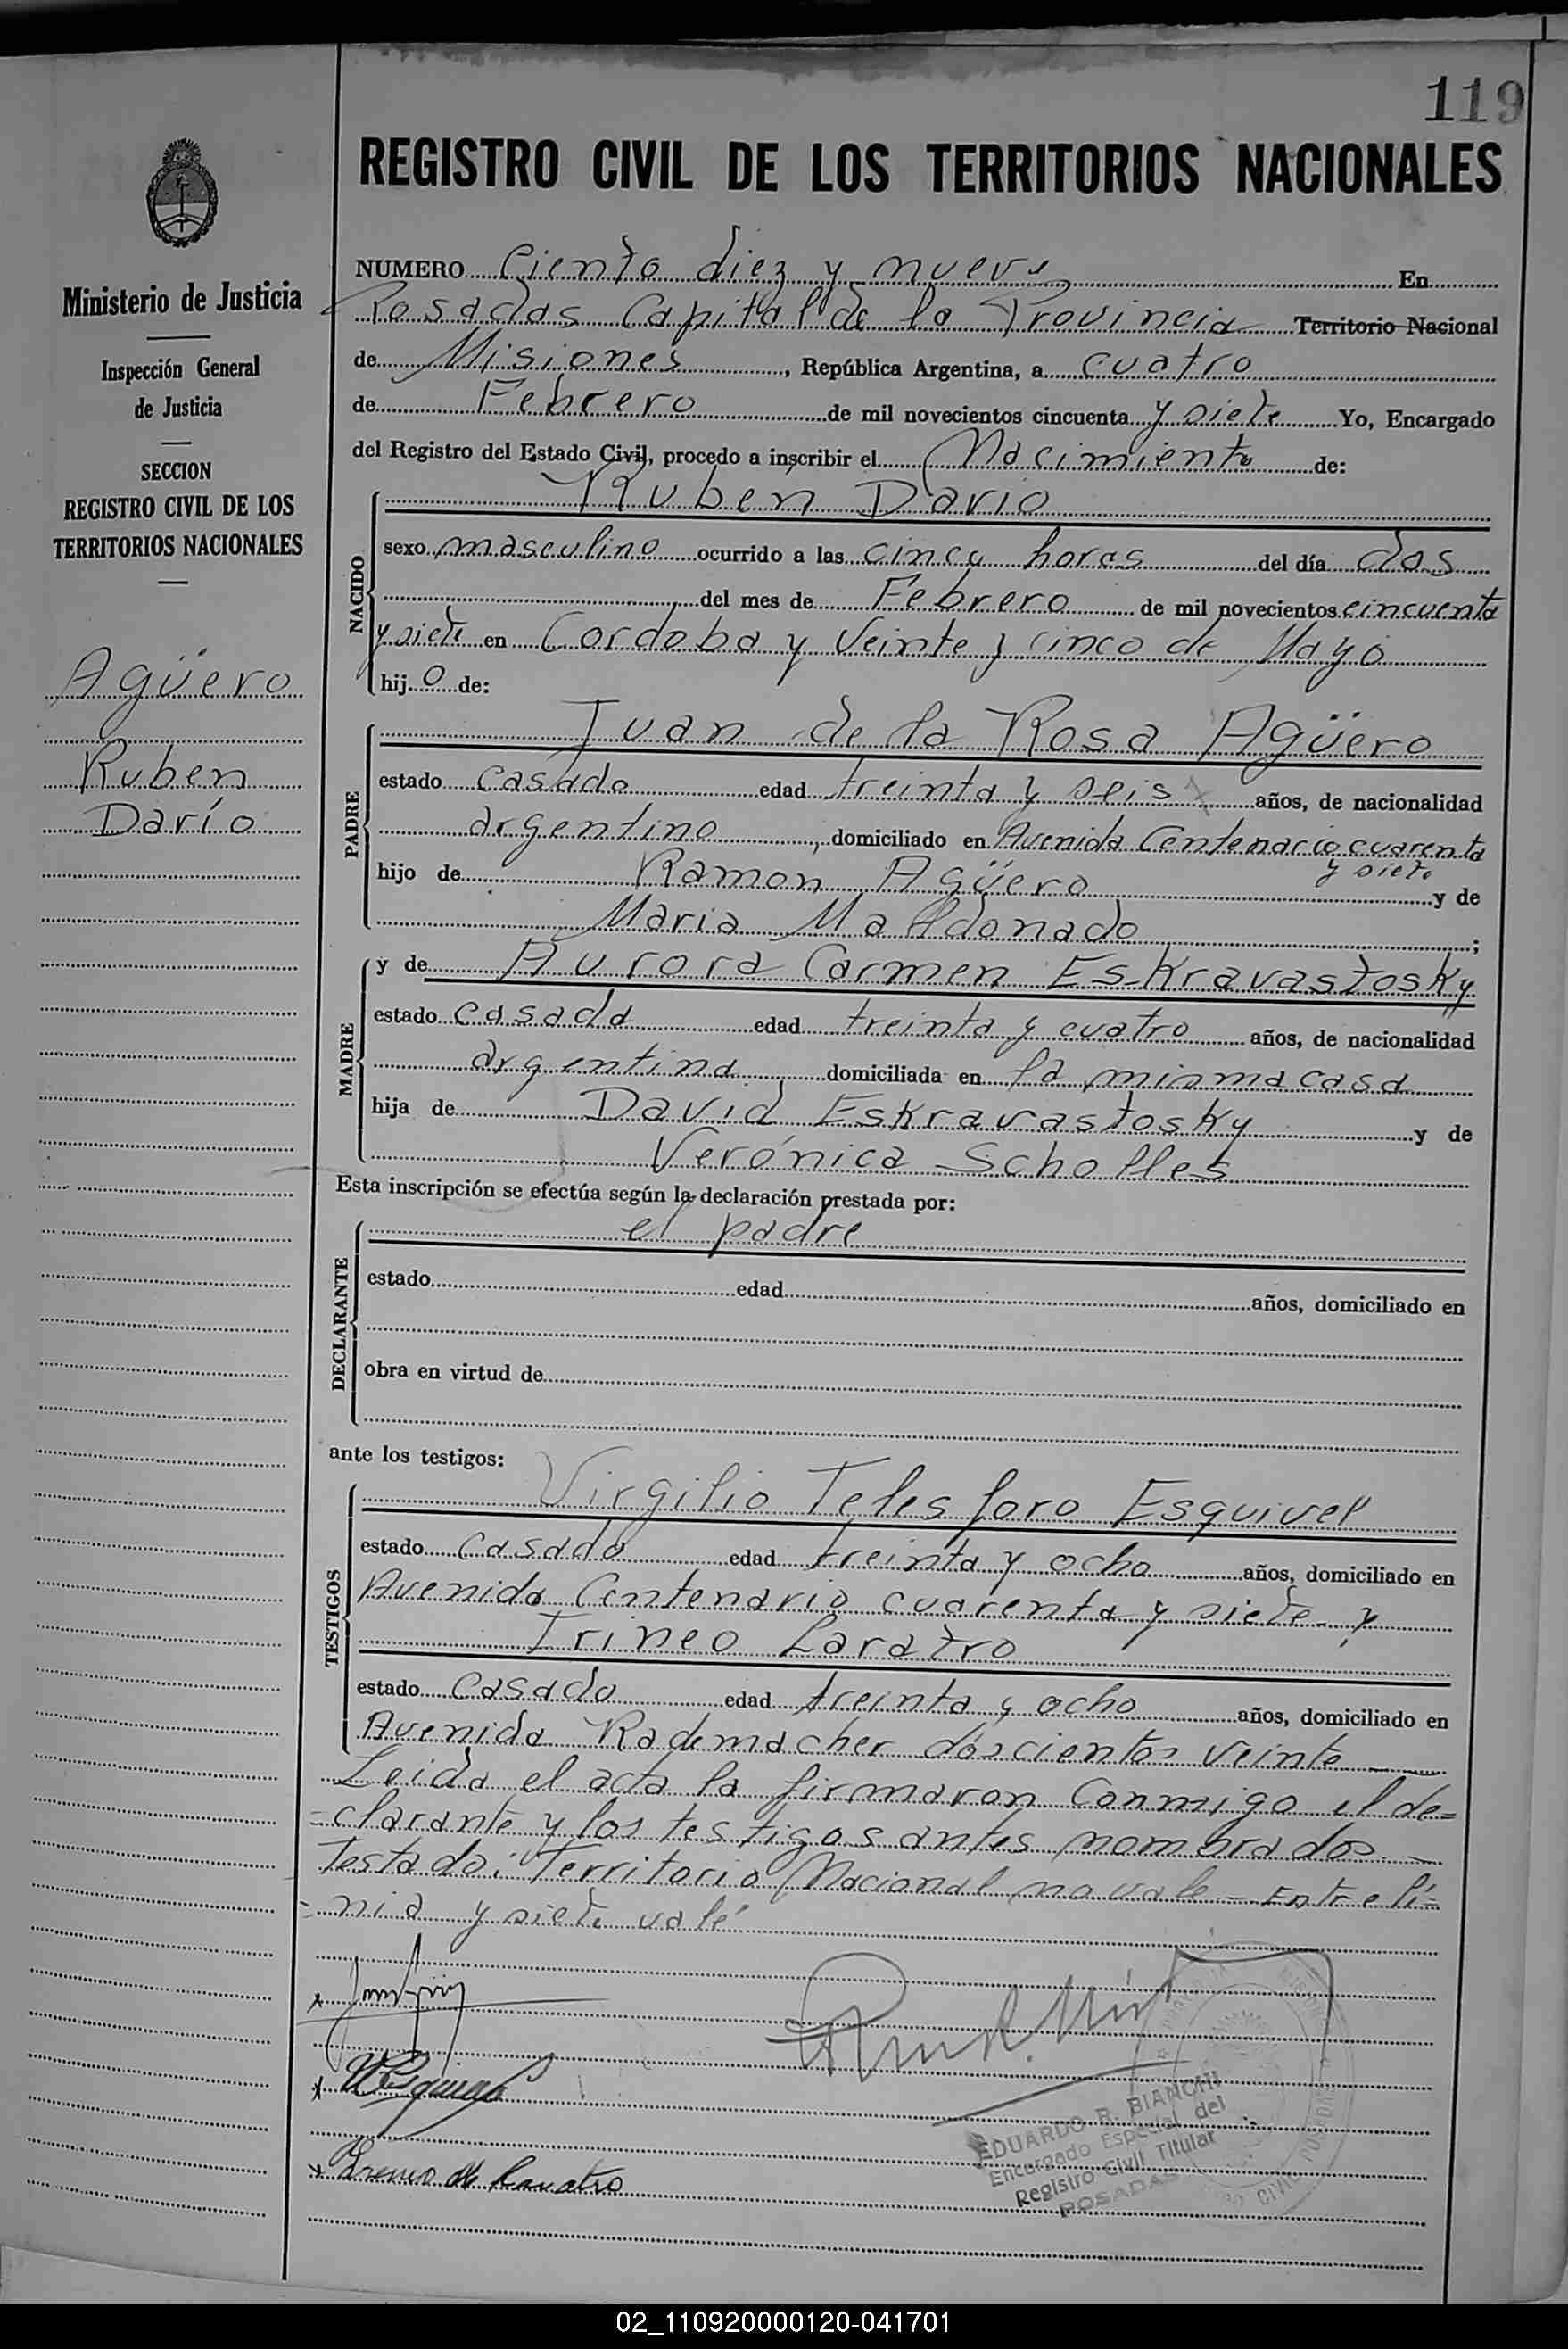 119
REGISTRO CIVIL DE LOS TERRITORIOS NACIONALES
Ministerio de Justicia
Inspección General
de Justicia
SECCION
REGISTRO CIVIL DE LOS
TERRITORIOS NACIONALES
Agüero
Ruben
Darío
NUMERO Ciento diez y nueve En
Posadas Capital de la Provincia Territorio Nacional
de Misiones, República Argentina, a cuatro
de Febrero de mil novecientos cincuenta y siete Yo, Encargado
del Registro del Estado Civil, procedo a inscribir el Nacimiento de:
NACIDO
Ruben Dario
sexo masculino ocurrido a las cinco horas del día dos
del mes de Febrero de mil novecientos cincuenta
y siete en Cordoba y Veinte y cinco de Mayo
hijo de:
PADRE
Juan de la Rosa Agüero
estado casado edad treinta y seis años, de nacionalidad
argentino, domiciliado en Avenida Centenario cuarenta
y siete
hijo de Ramon Agüero y de
Maria Maldonado;
MADRE
y de Aurora Carmen Eskravastosky
estado casada edad treinta y cuatro años, de nacionalidad
argentina, domiciliada en la misma casa
hija de David Eskravastosky y de
Verónica Scholles
Esta inscripción se efectúa según la declaración prestada por:
DECLARANTE
el padre
estado edad años, domiciliado en
obra en virtud de
ante los testigos:
TESTIGOS
Virgilio Telesforo Esquivel
estado casado edad treinta y ocho años, domiciliado en
Avenida Centenario cuarenta y siete y
Irineo Laratro
estado casado edad treinta y ocho años, domiciliado en
Avenida Rademacher doscientos veinte
Leida el acta la firmaron conmigo el de=
=clarante y los testigos antes nombrados. —
Testado: Territorio Nacional no vale - Entre lí=
=nia y siete vale
EDUARDO R. BIANCHI
Encargado Especial del
Registro Civil Titular
POSADAS
02_110920000120-041701